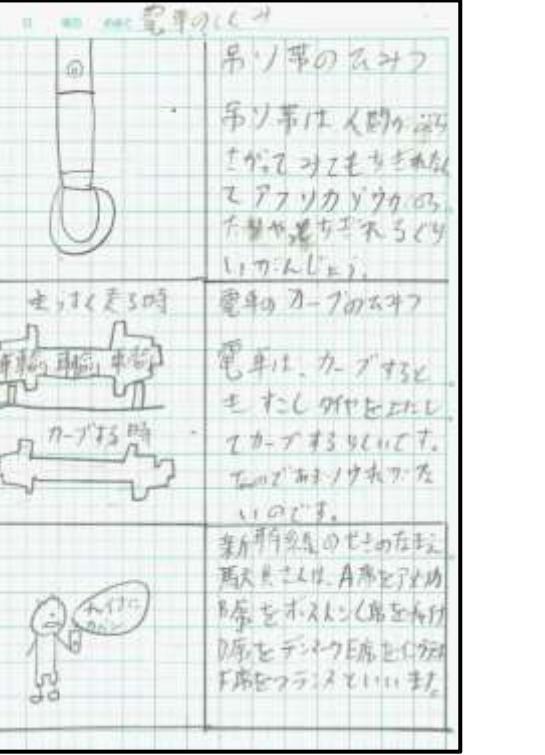 電車のしくみ
吊り革のひみつ
吊り革は人間がぶら
さがってみてもちぎれなく
てアフリカゾウがぶら
ちぎれるぐら
いがんじょう。
まっすぐ走る時
車輪 車輪 車輪
カーブする時
電車のカーブのひみつ
電車は、カーブすると
き すこし タイヤを
てカーブするらしいです。
なのであまりゆれがな
いのです。
新幹線のせきのなまえ
駅員さんは、A席をアメリカ
B席をボストンC席を
D席をデンマークE席をイングランド
F席をフランスといいます。